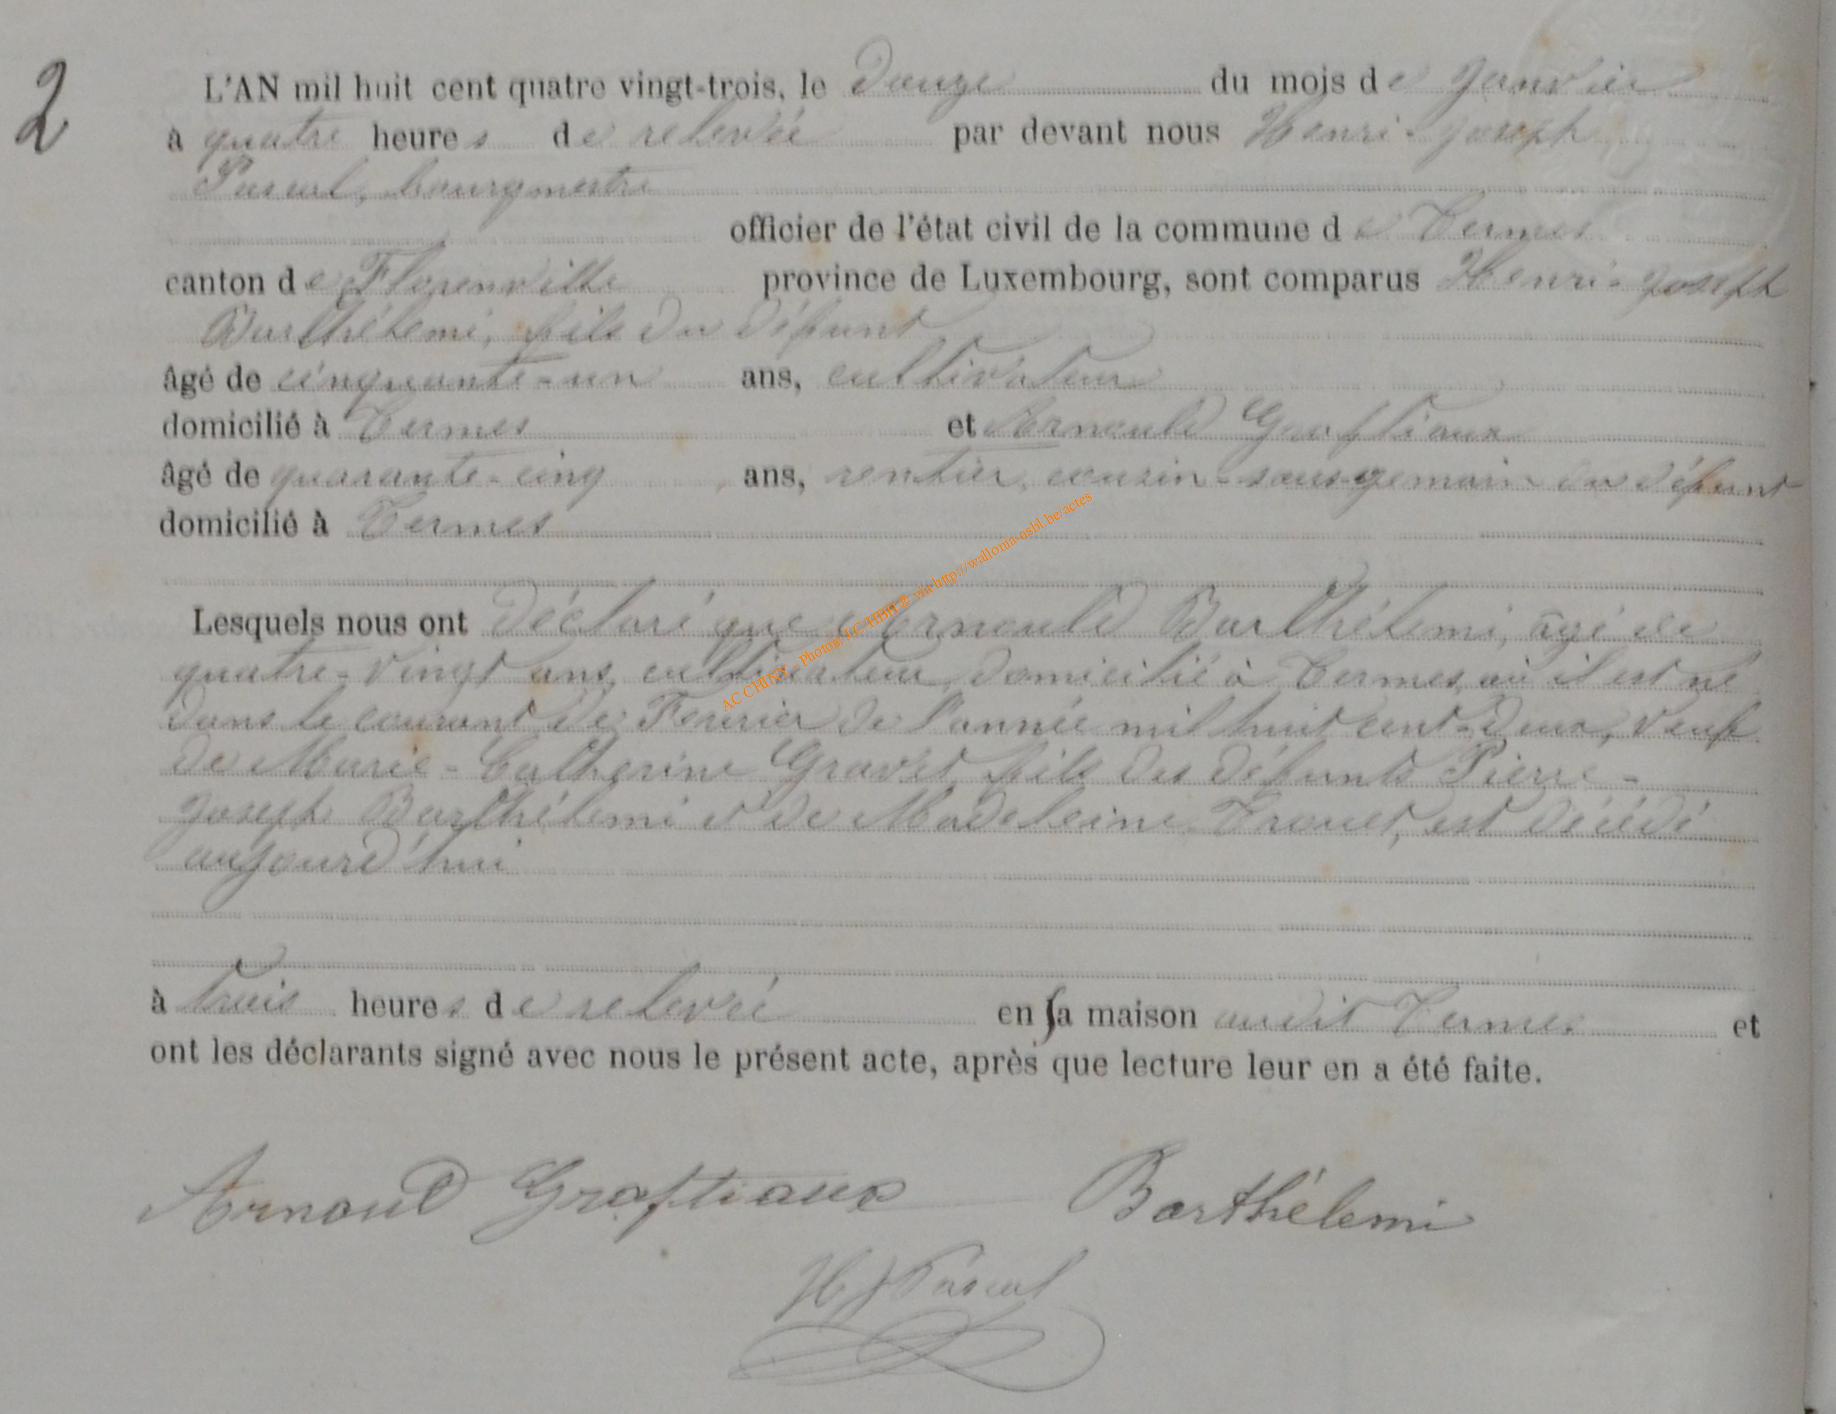 2
L'AN mil huit cent quatre vingt-trois, le douze du mois de Janvier
à quatre heures de relevée par devant nous Henri-Joseph
Pascal, bourgmestre
officier de l'état civil de la commune de Termes
canton de Florenville province de Luxembourg, sont comparus Henri-Joseph
Barthélemi, fils du défunt
âgé de cinquante-un ans, cultivateur
domicilié à Termes et Arnould Graftiaux
âgé de quarante-cinq ans, rentier, cousin-sous-germain du défunt
domicilié à Termes
Lesquels nous ont déclaré que Arnould Barthélemi, âgé de
quatre-vingt ans, cultivateur, domicilié à Termes, où il est né
dans le courant de Fevrier de l'année mil huit cent-deux, veuf
de Marie-Catherine Gravet, fils des défunts Pierre-
Joseph Barthélemi et de Madeleine Trouet, est décédé
aujourd'hui
à trois heures de relevée en sa maison audit Termes et
ont les déclarants signé avec nous le présent acte, après que lecture leur en a été faite.
Arnoud Graftiaux Barthélemi
HJ Pascal
AC CHINY - Photos via http://wallonia-asbl.be/actes